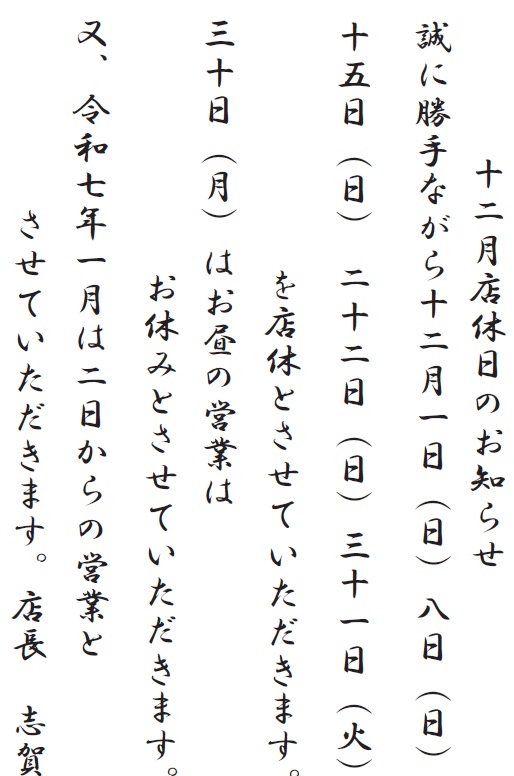 十二月店休日のお知らせ
誠に勝手ながら十二月一日（日）八日（日）
十五日（日）二十二日（日）三十一日（火）
を店休とさせていただきます。
三十日（月）はお昼の営業は
お休みとさせていただきます。
又、令和七年一月は二日からの営業と
させていただきます。店長　志賀